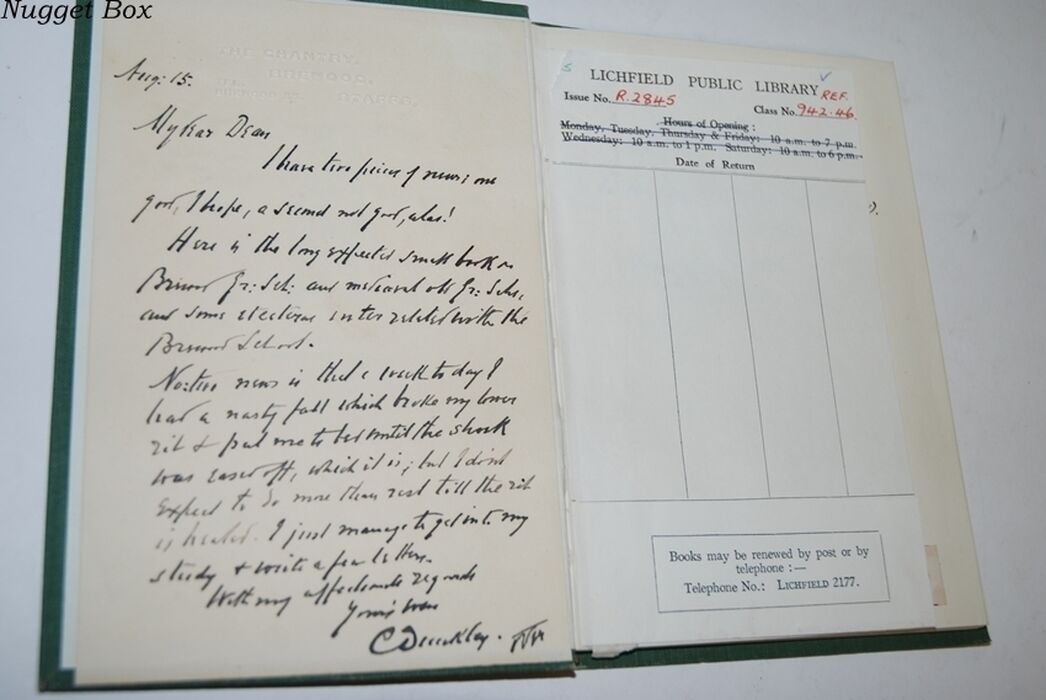 Nugget Box
THE CHANTRY,
BREWOOD,
STAFFS.
Aug: 15.
My dear Dean
I have two pieces of news: one
good, I hope, a second not good, alas!
Here is the long expected small book on
Brewood Gr: Sch: and mediaeval old Gr: Schs,
and some inter related with the
Brewood School.
news is that a week to day I
had a nasty fall which broke my lower
rib & put me to bed until the shock
was eased off, which it is; but I dont
expect to do more than rest till the rib
is healed. I just manage to get into my
study & write a few letters.
With my affectionate regards
Yours ever
LICHFIELD PUBLIC LIBRARY
REF.
Issue No. R.2845
Class No. 942.46
Hours of Opening:
Monday, Tuesday, Thursday & Friday: 10 a.m. to 7 p.m.
Wednesday: 10 a.m. to 1 p.m. Saturday: 10 a.m. to 6 p.m.
Date of Return
Books may be renewed by post or by
telephone:—
Telephone No.: LICHFIELD 2177.